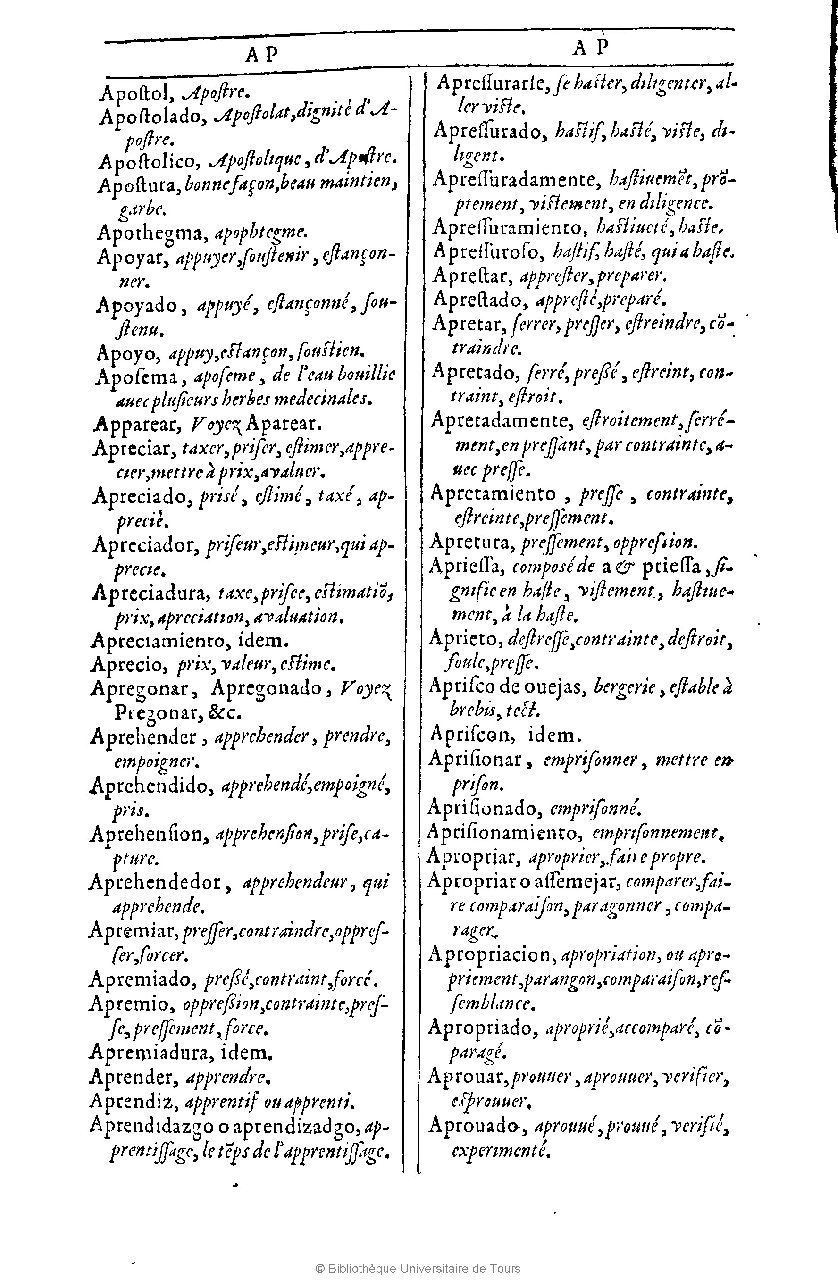 A P
Apoſtol, Apoſtre.
Apoſtolado, Apoſtolat, dignité d'A-
poſtre.
Apoſtolico, Apoſtolique, d'Apoſtre.
Apoſtura, bonne façon, beau maintien,
garbe.
Apothegma, apophtegme.
Apoyar, appuyer, ſouſtenir, eſtançon-
ner.
Apoyado, appuyé, eſtançonné, ſou-
ſtenu.
Apoyo, appuy, eſtançon, ſouſtien.
Apoſema, apoſeme, de l'eau bouillie
auec pluſieurs herbes medecinales.
Apparear, Voyez Aparear.
Apreciar, taxer, priſer, eſtimer, appre-
cier, mettre à prix, avaluer.
Apreciado, prisé, eſtimé, taxé, ap-
precié.
Apreciador, priſeur, eſtimeur, qui ap-
precie.
Apreciadura, taxe, priſee, eſtimatiõ,
prix, apreciation, avaluation.
Apreciamiento, idem.
Aprecio, prix, valeur, eſtime.
Apregonar, Apregonado, Voyez
Pregonar, &c.
Aprehender, apprehender, prendre,
empoigner.
Aprehendido, apprehendé, empoigné,
pris.
Aprehenſion, apprehenſion, priſe, ca-
pture.
Aprehendedor, apprehendeur, qui
apprehende.
Apremiar, preſſer, contraindre, oppreſ-
ſer, forcer.
Apremiado, preſſé, contraint, forcé.
Apremio, oppreſſion, contrainte, preſ-
ſe, preſſement, force.
Apremiadura, idem.
Aprender, apprendre.
Aprendiz, apprentif ou apprenti.
Aprendidazgo o aprendizadgo, ap-
prentiſſage, le tẽps de l'apprentiſſage.
A P
Apreſſurarſe, ſe haſter, diligenter, al-
ler viſte.
Apreſſurado, haſtif, haſté, viſte, di-
ligent.
Apreſſuradamente, haſtiuemẽt, prõ-
ptement, viſtement, en diligence.
Apreſſuramiento, haſtiueté, haſte.
Apreſſuroſo, haſtif, haſté, qui a haſte.
Apreſtar, appreſter, preparer.
Apreſtado, appreſté, preparé.
Apretar, ſerrer, preſſer, eſtreindre, cõ-
traindre.
Apretado, ſerré, preßé, eſtreint, con-
traint, eſtroit.
Apretadamente, eſtroitement, ſerré-
ment, en preſſant, par contrainte, a-
uec preſſe.
Apretamiento, preſſe, contrainte,
eſtreinte, preſſement.
Apretura, preſſement, oppreſsion.
Aprieſſa, composé de a & prieſſa, ſi-
gnifie en haſte, viſtement, haſtiue-
ment, à la haſte.
Aprieto, deſtreſſe, contrainte, deſtroit,
foule, preſſe.
Apriſco de ouejas, bergerie, eſtable à
brebis, tect.
Apriſcon, idem.
Apriſionar, empriſonner, mettre en
priſon.
Apriſionado, empriſonné.
Apriſionamiento, empriſonnement.
Apropriar, aproprier, faire propre.
Apropriar o aſſemejar, comparer, fai-
re comparaiſon, paragonner, compa-
rager.
Apropriacion, apropriation, ou apro-
priement, parangon, comparaiſon, reſ-
ſemblance.
Apropriado, aproprié, accomparé, cõ-
paragé.
Aprouar, prouuer, aprouuer, verifier,
eſprouuer.
Aprouado, aprouué, prouué, verifié,
experimenté.
© Bibliothèque Universitaire de Tours